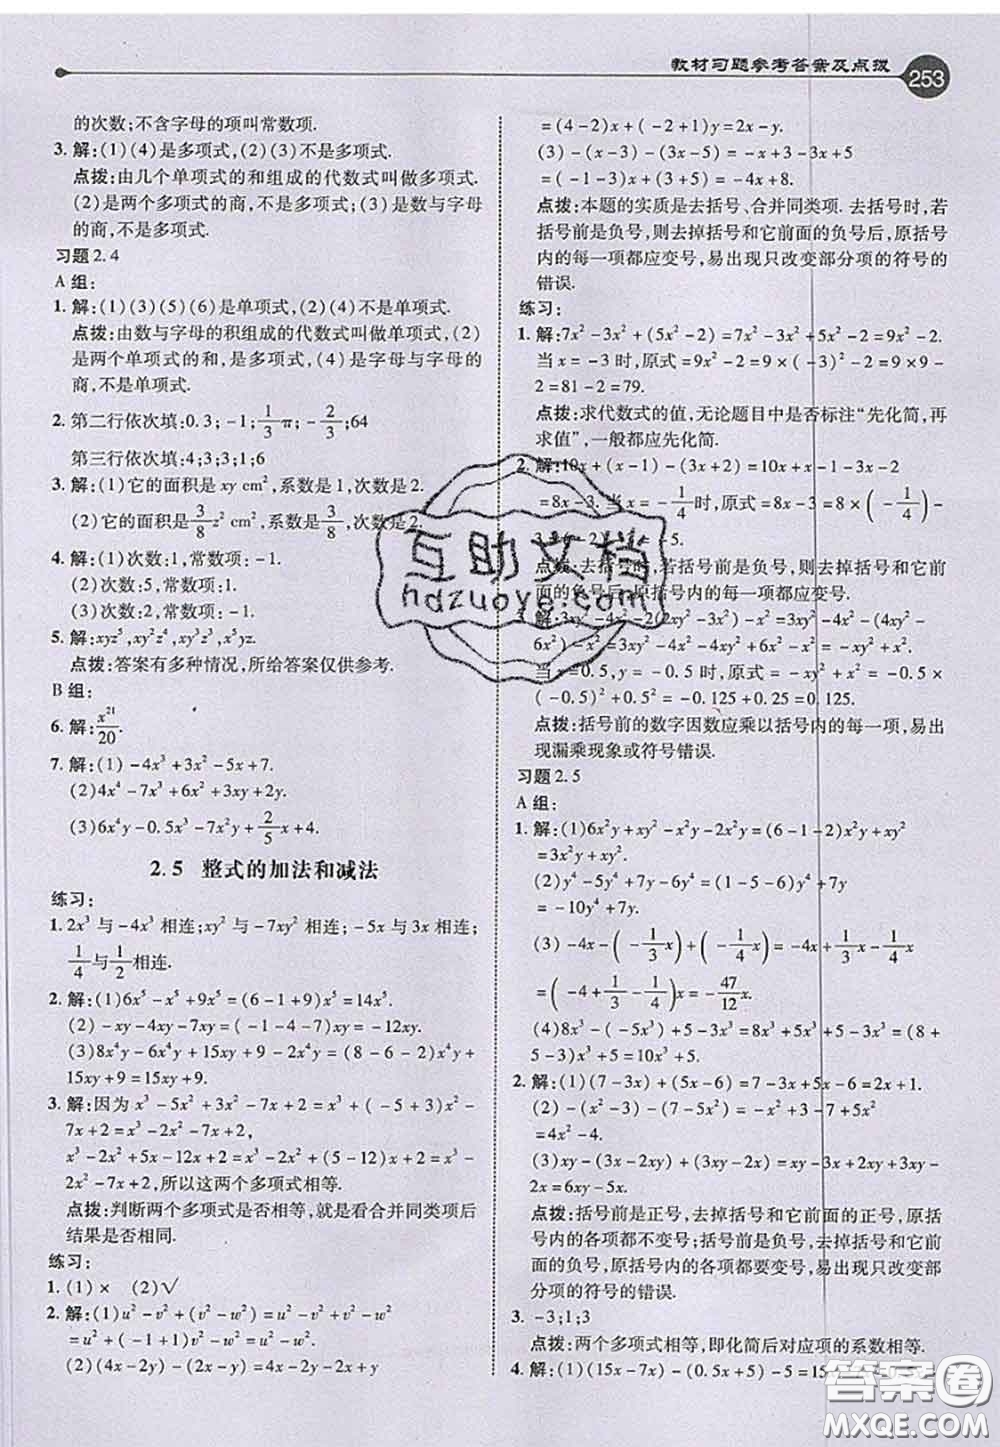 教材习题参考答案及点拨 253
的次数;不含字母的项叫常数项.
3. 解:(1)(4)是多项式,(2)(3)不是多项式.
点拨:由几个单项式的和组成的代数式叫做多项式.
(2)是两个多项式的商,不是多项式;(3)是数与字母
的商,不是多项式.
习题2.4
A组:
1. 解:(1)(3)(5)(6)是单项式,(2)(4)不是单项式.
点拨:由数与字母的积组成的代数式叫做单项式.(2)
是两个单项式的和,是多项式,(4)是字母与字母的
商,不是单项式.
2. 第二行依次填:0.3;-1;1/3π;-2/3;64
第三行依次填:4;3;3;1;6
3. 解:(1)它的面积是xy cm²,系数是1,次数是2.
(2)它的面积是3/8z² cm²,系数是3/8,次数是2.
4. 解:(1)次数:1,常数项:-1.
(2)次数:5,常数项:1.
(3)次数:2,常数项:-1.
5. 解:xyz⁵,xy²z⁴,xy³z³,x⁵yz.
点拨:答案有多种情况,所给答案仅供参考.
B组:
6. 解:x²¹/20.
7. 解:(1)-4x³+3x²-5x+7.
(2)4x⁴-7x³+6x²+3x-2.
(3)6x⁴y-0.5x³-7x²y+2/5x+4.
2.5 整式的加法和减法
练习:
1. 2x³与-4x³相连;xy²与-7xy²相连;-5x与3x相连;
1/4与1/2相连.
2. 解:(1)6x⁵-x⁵+9x⁵=(6-1+9)x⁵=14x⁵.
(2)-xy-4xy-7xy=(-1-4-7)xy=-12xy.
(3)8x⁴y-6x⁴y+15xy+9-2x⁴y=(8-6-2)x⁴y+
15xy+9=15xy+9.
3. 解:因为x³-5x²+3x²-7x+2=x³+(-5+3)x²-
7x+2=x³-2x²-7x+2,
x³-2x²+5x-12x+2=x³-2x²+(5-12)x+2=x³-
2x²-7x+2,所以这两个多项式相等.
点拨:判断两个多项式是否相等,就是看合并同类项后
结果是否相同.
练习:
1. (1)× (2)√
2. 解:(1)u²-v²+(v²-w²)=u²-v²+v²-w²
=u²+(-1+1)v²-w²=u²-w².
(2)(4x-2y)-(2x-y)=4x-2y-2x+y
=(4-2)x+(-2+1)y=2x-y.
(3)-(x-3)-(3x-5)=-x+3-3x+5
=(-1-3)x+(3+5)=-4x+8.
点拨:本题的实质是去括号、合并同类项.去括号时,若
括号前是负号,则去掉括号和它前面的负号后,原括号
内的每一项都应变号,易出现只改变部分项的符号的
错误.
练习:
1. 解:7x²-3x²+(5x²-2)=7x²-3x²+5x²-2=9x²-2.
当x=-3时,原式=9x²-2=9×(-3)²-2=9×9-
2=81-2=79.
点拨:求代数式的值,无论题目中是否标注“先化简,再
求值”,一般都应先化简.
2. 解:10x+(x-1)-(3x+2)=10x+x-1-3x-2
=8x-3.当x=-1/4时,原式=8x-3=8×(-1/4)-
点拨:去括号时,若括号前是负号,则去掉括号和它前
面的负号后,原括号内的每一项都应变号.
3. 解:3xy²-4x²-2(2xy²-3x²)-x²=3xy²-4x²-(4xy²-
6x²)-x²=3xy²-4x²-4xy²+6x²-x²=-xy²+x².
当x=0.5,y=-0.5时,原式=-xy²+x²=-0.5×
(-0.5)²+0.5²=-0.125+0.25=0.125.
点拨:括号前的数字因数应乘以括号内的每一项,易出
现漏乘现象或符号错误.
习题2.5
A组:
1. 解:(1)6x²y+xy²-x²y-2x²y=(6-1-2)x²y+xy²
=3x²y+xy².
(2)y⁴-5y⁴+7y-6y⁴=(1-5-6)y⁴+7y
=-10y⁴+7y.
(3)-4x-(-1/3x)+(-1/4x)=-4x+1/3x-1/4x
=(-4+1/3-1/4)x=-47/12x.
(4)8x³-(-5x³)+5-3x³=8x³+5x³+5-3x³=(8+
5-3)x³+5=10x³+5.
2. 解:(1)(7-3x)+(5x-6)=7-3x+5x-6=2x+1.
(2)-(x²-3)-(7-5x²)=-x²+3-7+5x²
=4x²-4.
(3)xy-(3x-2xy)+(3xy-2x)=xy-3x+2xy+
3xy-2x=6xy-5x.
点拨:括号前是正号,去掉括号和它前面的正号,原括
号内的各项都不变号;括号前是负号,去掉括号和它前
面的负号,原括号内的各项都要变号,易出现只改变部
分项的符号的错误.
3. -3;1;3
点拨:两个多项式相等,即化简后对应项的系数相等.
4. 解:(1)(15x-7x)-(0.5x+5)-5=15x
互助文档
hdzuoye.com
答案圈
MXQE.COM